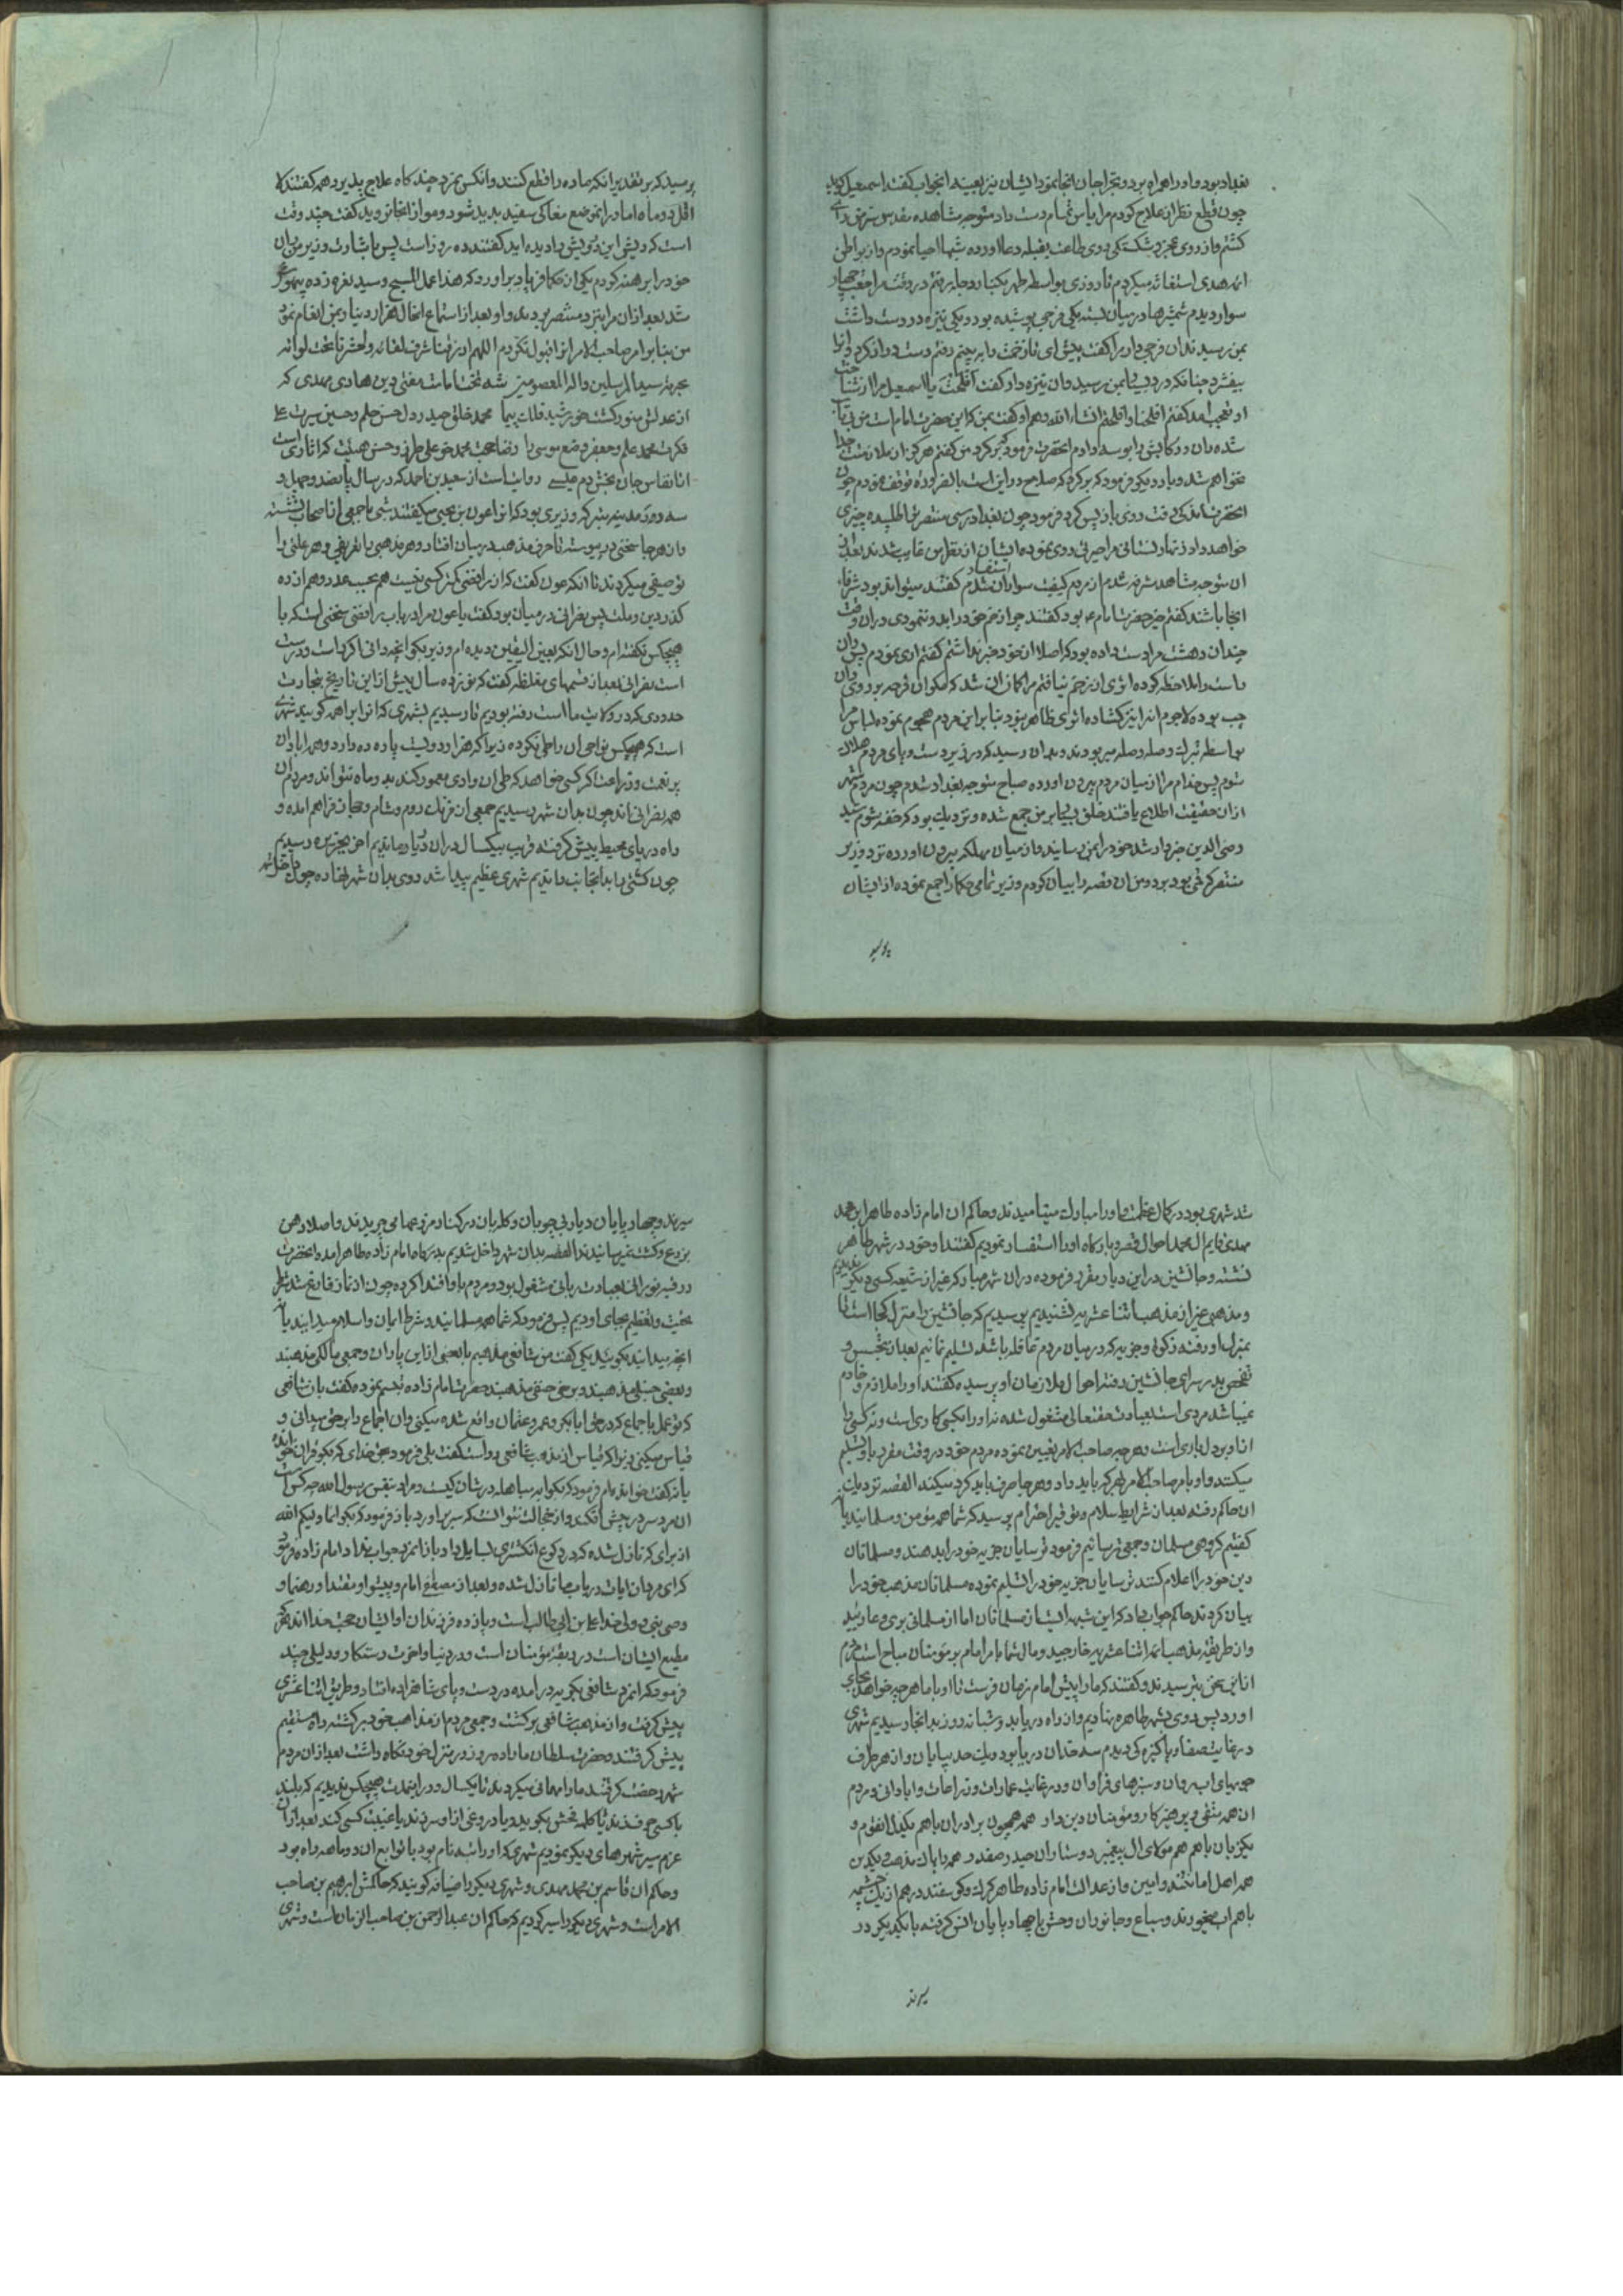 بغداد بود و او را همراه برد و بجراحان انجا نمود ایشان نیز بعینه انجواب گفتند اسمعیل گوید
چون قطع نظر از علاج کردم مرا یاس تمام دست داد متوجه مشاهده مقدس سرمن رای
گشتم و از روی عجز و شکستگی روی طاعت بقبله دعا اورده شبها احیا نمودم و از بواطن
ائمه هدی استغاثه میکردم تا روزی بواسطه طهر بکنار دجله رفتم در وقت مراجعت چهار
سوار دیدم شمشیرها در میان بسته یکی فرجی پوشیده بود و یکی نیزه در دست داشت
بمن رسیدند ان فرجی دار مرا گفت پیش ای تا زخمت را ببینم رفتم دست دراز کرد و انرا
بیفشرد چنانکه درد بسیار بمن رسید و ان نیزه دار گفت افلحت یا اسمعیل مرا از شناخت
او تعجب امد گفتم افلحنا و افلحتم انشاء الله و هم او گفت بمن که این حضرت امام است من بیتاب
شده ران و رکابش را بوسه دادم انحضرت فرمود که برگرد من گفتم هرگز از ملازمت جدا
نخواهم شد و بار دیگر فرمود که برگرد که صلاح در این است بالضروره توقف نمودم چون
انحضرت اندکی رفت روی باز پس کرد فرمود چون بغداد رسی منتصر ترا طلبیده چیزی
خواهد داد زنهار نستانی مرا حیرتی روی نموده ایشان از نظر من غایب شدند بعد از
ان متوجه مشاهد شرفه شدم از مردم کیفیت سواران استفسار شدم گفتند میتواند بود شرفاء
انجا باشند گفتم خیر حضرت امام ع بود گفتند چرا زخم خود را بدو ننمودی در ان وقت
چندان دهشت مرا دست داده بود که اصلا از خود خبر نداشتم گفتم اری نمودم پس ران
راست را ملاحظه کرده اثری از زخم نیافتم مرا گمان ان شد که مگر ان قرحه بر روی ران
چپ بوده لاجرم انرا نیز گشاده اثری ظاهر نبود بنابراین مردم هجوم نموده لباس مرا
بواسطه تبرک وصله وصله میربودند و بدان رسید که در زیر دست و پای مردم هلاک
شوم پس خدام مرا از میان مردم بیرون اورده صباح متوجه بغداد شدم چون مردم شهر
از ان حقیقت اطلاع یافتند خلق بسیار بر من جمع شده و نزدیک بود که خفه شوم سید
رضی الدین خبردار شد خود را بمن رسانید و از میان مهلکه بیرون اورده نزد وزیر
منتصر که قمی بود برد و من ان قصه را بیان کردم وزیر تمامی حکما را جمع نموده از ایشان
پرسید
پرسید که بر تقدیر انکه ماده را قطع کنند و انکس نمیرد چند گاه علاج پذیرد همه گفتند لا
اقل دو ماه اما در انموضع مغاکی سفید پدید شود و مو از انجا نروید گفت چند وقت
است که ریش این درویش را دیده اید گفتند ده روز است پس باشارت وزیر من ران
خود را برهنه کردم یکی از حکما فریاد براورد که هذا عمل المسیح و سید نعره زده بیهوش
شد بعد از ان مرا نیز نزد منتصر بردند و او بعد از استماع انحال هزار دینار بمن انعام نمود
من بنابر امر صاحب الامر انرا قبول نکردم اللهم ارزقنا شرف لقائه واحشرنا تحت لوائه
بحرمة سید المرسلین واله المعصومین شه تخت امامت مفتی دین هادی مهدی که
از عدلش منور گشت خورشید فلک پیما محمد خلق حیدر دل حسن حلم و حسین سیرت علی
فکرت محمد علم و جعفر وضع موسی را رضا حجت محمد خو علی طرز و حسن هیئت که اثاری است
از انفاس جان بخش دم عیسی روایت است از سعید بن احمد که در سال پانصد و چهل و
سه در مدینه بنبر که وزیری بود که انرا عون بن یحیی میگفتند شبی با جمعی از اصحاب نشسته
و از هر جا سخنی در پیوسته تا حرف مذهب در میان افتاد و هر مذهبی را تعریفی و هر ملتی را
توصیفی میکردند تا انکه عون گفت که از رافضی کمتر کسی نیست هم بحسب عدد و هم از ده
گذر دین و ملت پس نصرانی در میان بود گفت یا عون مرا در باب رافضی سخنی است که با
هیچکس نگفته ام و حال انکه بعین الیقین دیده ام وزیر بگو انچه دانی اگر راست و درست
است نصرانی بعد از قسمهای مغلظه گفت که نوزده سال پیش از این تاریخ بتجارت
حدودی که در ولایت ما است رفته بودیم تا رسیدیم بشهری که انرا براهمه گویند شهری
است که هیچکس نواحی ان را طی نکرده زیرا که هزار و دویست پاره ده دارد و همه ابادان
پر نعمت و زراعت اگر کسی خواهد که طی ان وادی معمور کند بدو ماه نتواند و مردم ان
همه نصرانی اند چون بدان شهر رسیدیم جمعی از فرنگ و روم و شام و حجاز فراهم امده و
راه دریای محیط پیش گرفته قریب بیکسال در ان دریا در ماندیم اخر بجزیره رسیدیم
چون کشتی را بدانجانب راندیم شهری عظیم پیدا شد روی بدان شهر نهاده چون داخل شهر
شد شهری بود در کمال عظمت و او را مبارک میتا میدند و حاکم ان امام زاده طاهر ابن محمد
مهدی قایم ال محمد احوال قصر و بارگاه او را استفسار نمودیم گفتند او خود در شهر طاهر
نشسته و جانشین در این دیار مقرر فرموده در ان شهر مبارکه غیر از شیعه کسی دیگر ندیدیم
و مذهبی غیر از مذهب اثنا عشریه نشنیدیم پرسیدیم که جانشین را منزل کجا است تا
بمنزل او رفته زکوة و جزیه که در میان مردم قافله باشد تسلیم نمائیم بعد از تجسس و
تفحص بدر سرای جانشین رفته احوال ملازمان او پرسیده گفتند او را ملازم و خادم
نمیباشد مردی است بعبادت حقتعالی مشغول شده نه او را بکسی کاری است و نه کسی را
از او بر دل باری است و هر چه صاحب الامر تعیین نموده مردم خود در وقت مقرر باو تسلیم
میکنند و او بامر صاحب الامر بهر که باید داد و هر جا صرف باید کرد میکند القصه نزدیک
ان حاکم رفته بعد از شرایط سلام و توقیر احترام پرسید که شما همه مؤمن و مسلمانید یا نه
گفتیم گروهی مسلمان و جمعی ترسائیم فرمود ترسایان جزیه خود را بدهند و مسلمانان
دین خود را اعلام کنند ترسایان جزیه خود را تسلیم نموده مسلمانان مذهب خود را
بیان کردند حاکم جواب داد که این شبهه ایشان مسلمانان اما از مسلمانی بری و عارید
و از طریقه مذهب ائمه اثنا عشریه خارجید و مال شما بامر امام بر مؤمنان مباح است مردم
از این سخن بترسیدند و گفتند که ما را پیش امام زمان فرست تا او با ما هر چه خواهد بجای
اورد پس روی بشهر طاهره نهادیم و از راه دریا بده شبانه روز بدانجا رسیدیم شهری
در غایت صفا و پاکیزه گی دیدم سه حد ان دریا بود و یک حد بیابان و از هر طرف
جویهای اب روان و سبزهای فراوان و در غایت عمارات و زراعات و ابادانی و مردم
ان همه متقی و پرهیزکار و مؤمنان دین دار همه همچون برادران با هم یکدل انقوم و
یکزبان با هم هم مولای ال پیغمبر دوستاران حیدر صفدر همه را پاک مذهب و یکدین
همه اهل امانتند و امین و از عدالت امام زاده طاهر گرگ و گوسفند در هم از یک چشمه
با هم اب میخورند و سباع و جانوران وحش با چهار پایان انس گرفته با یکدیگر در
سیرند
سیرند و چهار پایان در بازی چوپان و گله بان در کنار مزرعها می چریدند و اصلا دهن
بزرع و کشته نمیرسانیدند القصه بدان شهر داخل شدیم بدرگاه امام زاده طاهر امده انحضرت
در قبه نورانی بعبادت ربانی مشغول بود و مردم باو اقتدا کرده چون از نماز فارغ شد شرط
تحیت و تعظیم بجای اوردیم پس فرمود که شما همه مسلمانید و شرط ایمان و اسلام میدانید یا نه
انچه میدانید بگوئید یکی گفت من شافعی مذهبم با بعضی از این یاران و جمعی مالکی مذهبند
و بعضی حنبلی مذهبند و برخی حنفی مذهبند حضرت امام زاده تبسم نموده گفت با ان شافعی
که تو عمل باجماع که در حق ابابکر و عمر و عثمان واقع شده میکنی و ان اجماع را بر حق میدانی و
قیاس میکنی زیرا که قیاس از مذهب شافعی روا است گفت بلی فرمود بحق خدای که بگو قران خوانده
یا نه گفت خوانده ام فرمود که بگو ایه مباهله در شان کیست و مراد بنفس رسول الله چه کس است
ان مرد سر در پیش افکند و از خجالت نتوانست که سر براورد باز فرمود که بگو انما ولیکم الله
از برای که نازل شده که در رکوع انگشتری بسایل داد باز انمرد جواب نداد امام زاده فرمود
که ای مردمان ایات در باب ما نازل شده و بعد از مصطفی امام و پیشوا و مقتدا و رهنما و
وصی نبی و ولی خدا علی بن ابی طالب است و یازده فرزندان او ایشان حجت خدا اند هر که
مطیع ایشان است در دینه مؤمنان است و در دنیا و اخرت رستگار و دلیلی چند
فرمود که انمرد شافعی بگریه درامده در دست و پای شاهزاده افتاد و طریق اثنا عشری
پیش گرفت و از مذهب شافعی برگشت و جمعی مردم از مذاهب خود برگشته راه مستقیم
پیش گرفتند و حضرت سلطان ما را ده روز در منزل خود نگاه داشت بعد از ان مردم
شهر رخصت گرفتند ما را مهمانی میکردند تا یکسال و در اینمدت هیچکس ندیدیم که بلند
با کسی حرف زند یا کلمه فحش بگوید و یا دروغی از او سر زند یا غیبت کسی کند بعد از ان
عزم سیر شهرهای دیگر نمودیم شهری که او را رائقه نام بود با توابع ان دو ماهه راه بود
و حاکم ان قاسم بن محمد مهدی و شهری دیگر را ضیافه گویند که حاکمش ابرهیم بن صاحب
الامر است و شهری دیگر را سیر کردیم که حاکم ان عبد الرحمن بن صاحب الزمان است و شهری